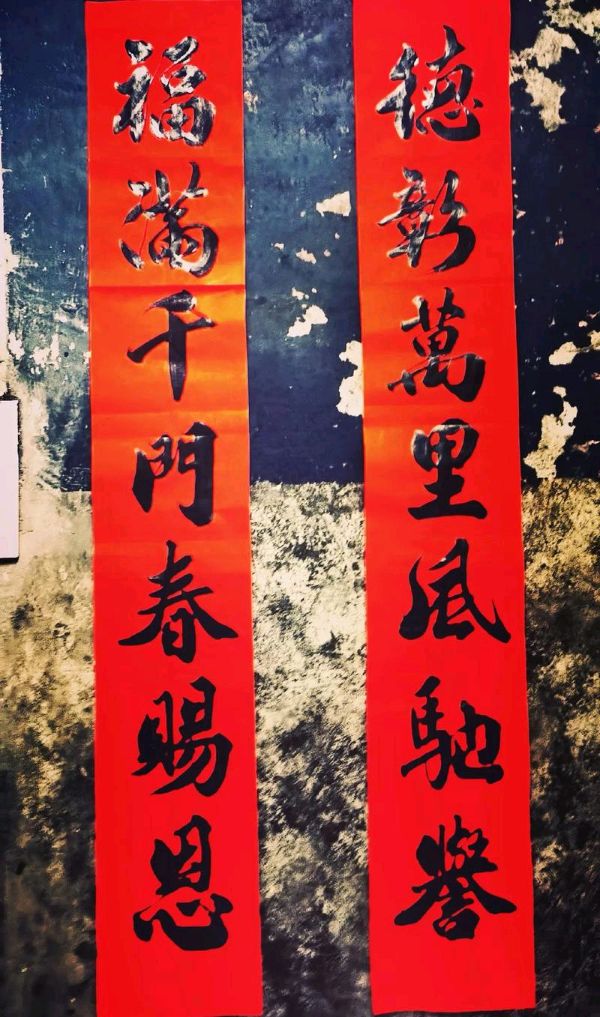 德彰萬里風馳譽
福滿千門春賜恩